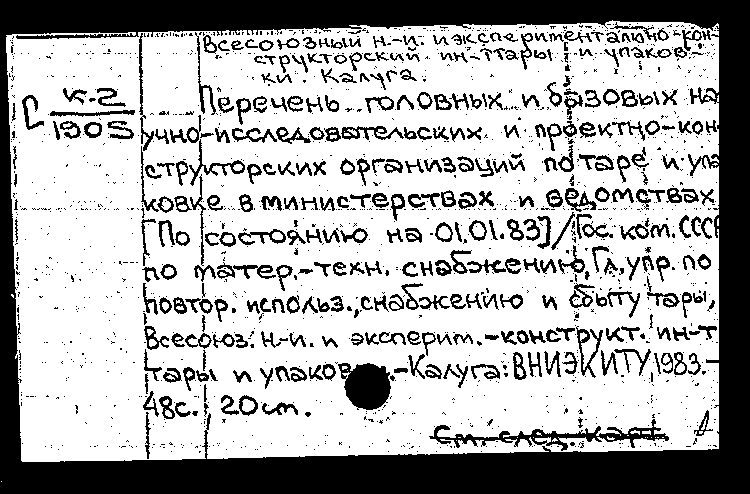 Всесоюзный н.-и. и экспериментально-кон-
структорский ин-т тары и упаков-
ки. Калуга.
К-2
1905
Перечень головных и базовых на
учно-исследовательских и проектно-кон
структорских организаций по таре и упа
ковке в министерствах и ведомствах
[По состоянию на 01.01.83]/Гос. ком. СССР
по матер.-техн. снабжению, Гл. упр. по
повтор. использ., снабжению и сбыту тары,
Всесоюз. н.-и. и эксперим.-конструкт. ин-т
тары и упаков .-Калуга: ВНИЭКИТУ, 1983.-
48с.; 20 см.
См. след. карт.